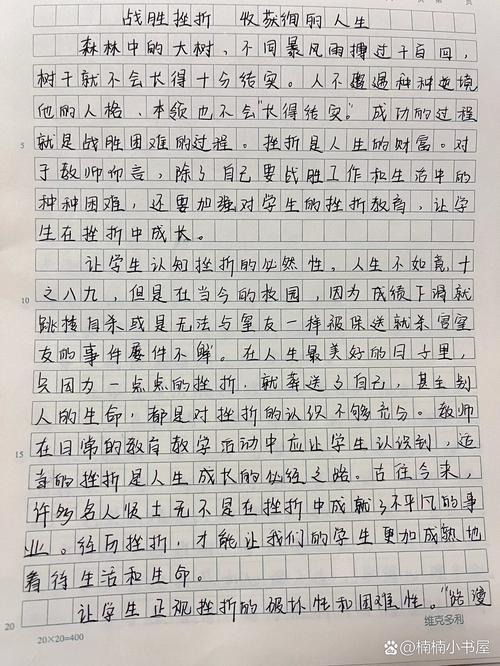 战胜挫折 收获绚丽人生
森林中的大树，不同暴风雨搏过千百回，
树干就不会长得十分结实。人不遭遇种种逆境
他的人格、本领也不会“长得结实”。成功的过程
就是战胜困难的过程。挫折是人生的财富。对
于教师而言，除了自己要战胜工作和生活中的
种种困难，还要加强对学生的挫折教育，让学
生在挫折中成长。
让学生认知挫折的必然性。人生不如意，十
之八九，但是在当今的校园，因为成绩下滑就
跳楼自杀或是无法与室友一样被保送就杀害室
友的事件屡件不鲜。在人生最美好的日子里，
只因为一点点的挫折，就葬送了自己，甚至别
人的生命，都是对挫折的认识不够充分。教师
在日常的教育教学活动中应让学生认识到，适
当的挫折是人生成长的必经之路。古往今来，
许多名人贤士无不是在挫折中成就了不平凡的事
业。经历挫折，才能让我们的学生更加成熟地
看待生活和生命。
让学生正视挫折的破坏性和困难性。“路漫
5
10
15
20
20×20=400
维克多利
@楠楠小书屋